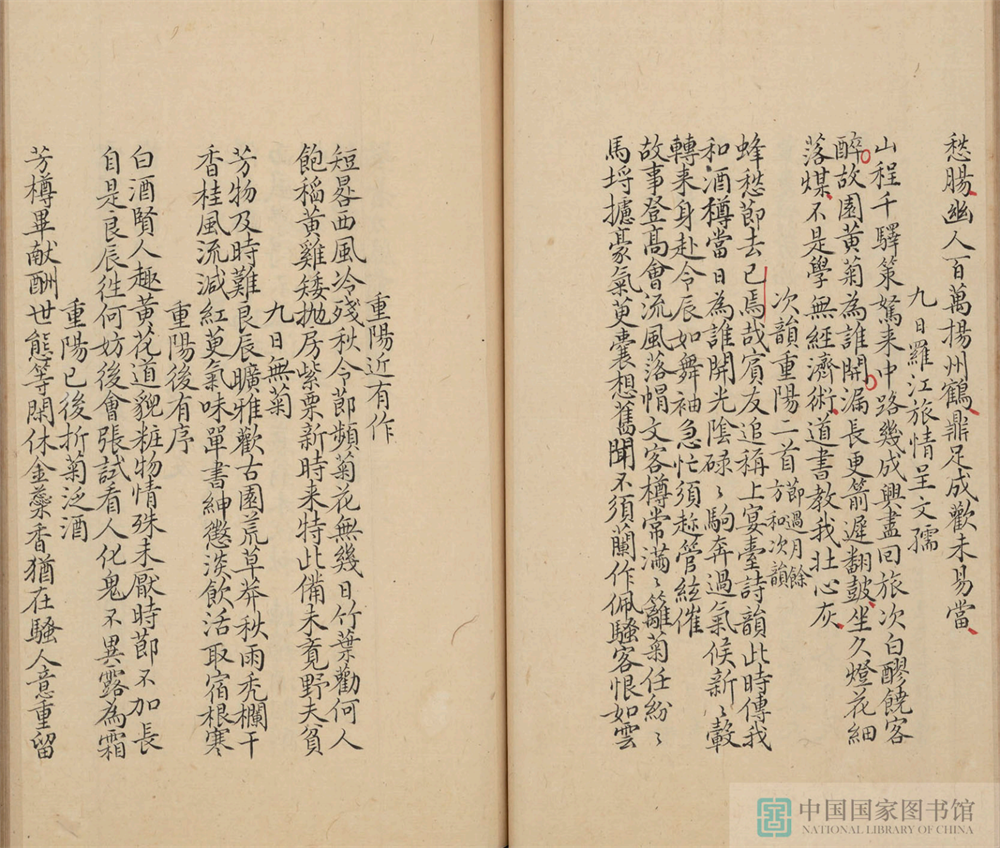 愁腸幽人百萬揚州鶴鼎足成歡未易當
九日羅江旅情呈文孺
山程千驛策駑来中路幾成興盡回旅次白醪饒客
醉故園黄菊為誰開漏長更箭遲翻鼓坐久燈花細
落煤不是學無經濟術道書教我壯心灰
次韻重陽二首節過月餘方和次韻
蜂愁節去已焉哉賓友追稱上宴臺詩韻此時傳我
和酒樽當日為誰開光陰碌〻駒奔過氣候新〻轂
轉来身赴令辰如舞袖急忙須趂管絃催
故事登髙會流風落帽文客樽常滿〻籬菊任紛〻
馬埒攄豪氣萸囊想舊聞不須蘭作佩騷客恨如雲
重陽近有作
短晷西風冷殘秋令節頻菊花無幾日竹葉勸何人
飽稻黄雞矮抛房紫栗新時来特此備未竟野夫貧
九日無菊
芳物及時難良辰曠雅歡古園荒草莽秋雨禿欄干
香桂風流減紅萸氣味單書紳懲淡飲活取宿根寒
重陽後有序
白酒賢人趣黄花道貌粧物情殊未厭時節不加長
自是良辰徃何妨後會張試看人化鬼不異露為霜
重陽已後折菊泛酒
芳樽畢献酬世態等閑休金蘂香猶在騷人意重留
中国国家图书馆
NATIONAL LIBRARY OF CHINA